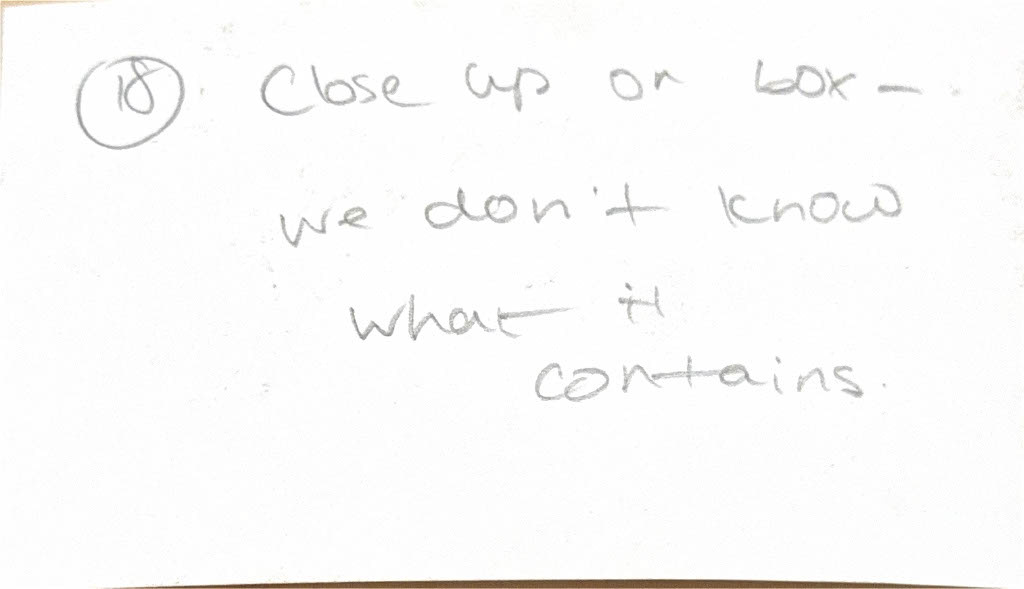 18 Close up on box -
we don't know
what it
contains.